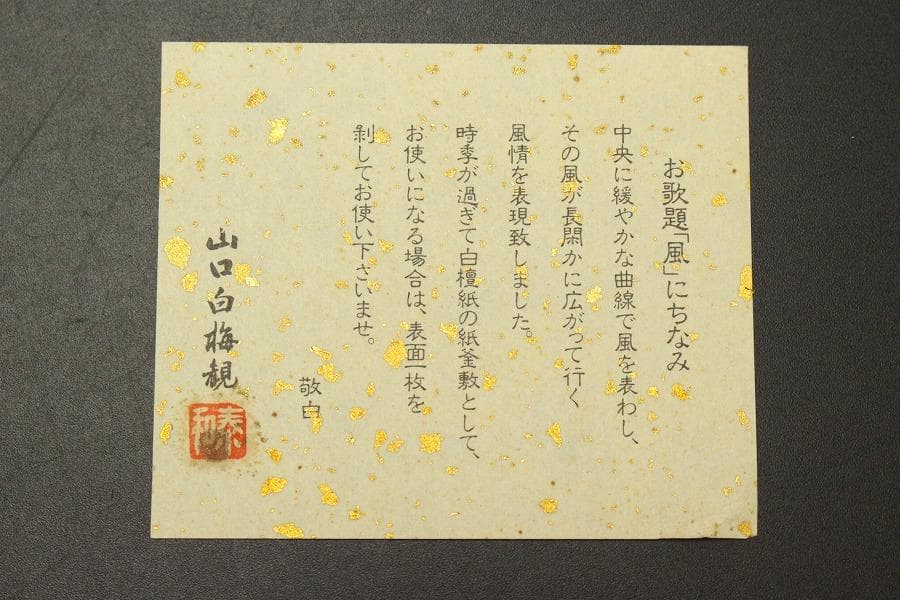 お歌題「風」にちなみ
中央に緩やかな曲線で風を表わし、
その風が長閑かに広がって行く
風情を表現致しました。
時季が過ぎて白檀紙の紙釜敷として、
お使いになる場合は、表面一枚を
剥してお使い下さいませ。
敬白
山口白梅観
泰和